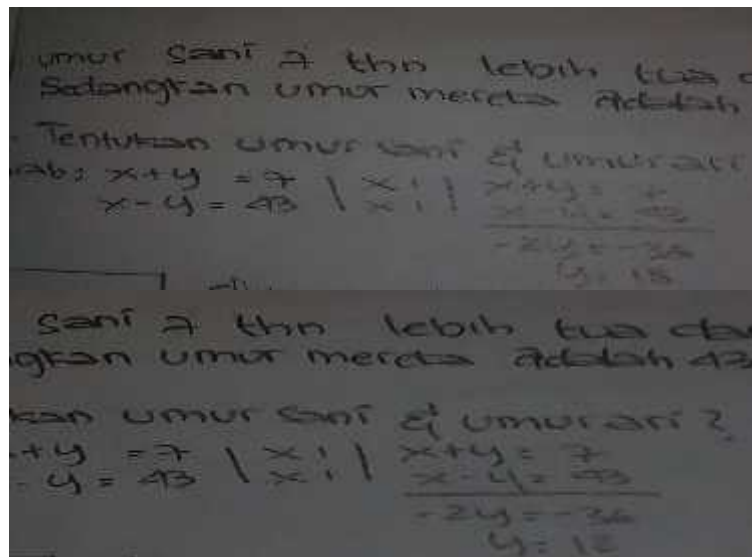 umur Sani 7 thn lebih tua
Sedangkan umur mereka Adalah
Tentukan umur sani & umur ari
ab: x+y = 7 | x 1 | x+y = 7
x-y = 43 | x 1 | x-y = 43
-2y = -36
y = 18
Sani 7 thn lebih tua dar
gkan umur mereka Adalah 43
kan umur sani & umur ari?
+y = 7 | x 1 | x+y = 7
-y = 43 | x 1 | x-y = 43
-2y = -36
y = 18